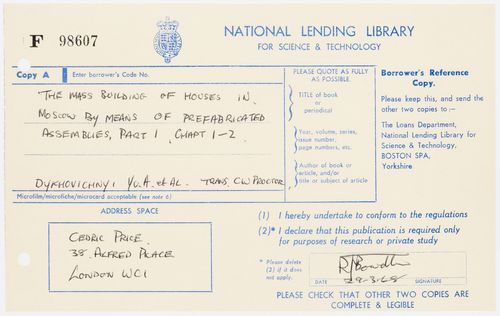 F 98607
NATIONAL LENDING LIBRARY
FOR SCIENCE & TECHNOLOGY
Copy A
Enter borrower's Code No.
THE MASS BUILDING OF HOUSES IN
MOSCOW BY MEANS OF PREFABRICATED
ASSEMBLIES, PART 1 CHAPT 1-2
DYKHOVICHNYI YU.A. et AL. TRANS. CW PROCTOR
Microfilm/microfiche/microcard acceptable (see note 6)
PLEASE QUOTE AS FULLY
AS POSSIBLE.
TITLE of book
or
periodical
Year, volume, series,
issue number,
page numbers, etc.
Author of book or
article, and/or
title or subject of article
Borrower's Reference
Copy.
Please keep this, and send the
other two copies to :-
The Loans Department,
National Lending Library for
Science & Technology,
BOSTON SPA,
Yorkshire
ADDRESS SPACE
CEDRIC PRICE
38 ALFRED PLACE
LONDON WC1
(1) I hereby undertake to conform to the regulations
(2)* I declare that this publication is required only
for purposes of research or private study
* Please delete
(2) if it does
not apply.
29-3-68
DATE SIGNATURE
PLEASE CHECK THAT OTHER TWO COPIES ARE
COMPLETE & LEGIBLE